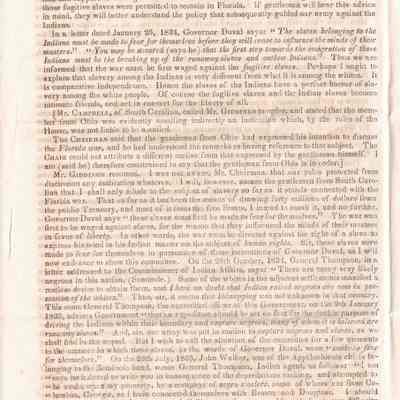 those fugitive slaves were permitted to remain in Florida. If gentlemen will bear this advice
in mind, they will better understand the policy that subsequently guided our army against the
Indians.
In a letter dated January 26, 1834, Governor Duval says: "The slaves belonging to the
Indians must be made to fear for themselves before they will cease to influence the minds of their
masters." "You may be assured (says he) that the first step towards the emigration of these
Indians must be the breaking up of the runaway slaves and outlaw Indians." Thus we are
informed that the war must be first waged against the fugitive slaves. Perhaps I ought to
explain that slavery among the Indians is very different from what it is among the whites. It
is comparative independence. Hence the slaves of the Indians have a perfect horror of sla-
very among the white people. Of course the fugitive slaves and the Indian slaves become
intimate friends, and act in concert for the liberty of all.
[Mr. Campbell, of South Carolina, called Mr. Giddings to order, and stated that the mem-
ber from Ohio was evidently assailing indirectly an institution which, by the rules of the
House, was not liable to be assailed.
The Chairman said that the gentleman from Ohio had expressed his intention to discuss
the Florida war, and he had understood the remarks as having reference to that subject. The
Chair could not attribute a different motive from that expressed by the gentleman himself. I
am (said he) therefore constrained to say that the gentleman from Ohio is in order.]
Mr. Giddings resumed. I was not aware, Mr. Chairman, that our rules protected from
discussion any institution whatever. I will, however, assure the gentleman from South Caro-
lina that I shall only allude to the subject of slavery so far as it stands connected with the
Florida war. That so far as it has been the means of drawing forty millions of dollars from
the public Treasury, and most of it from the free States, I intend to touch it, and no further.
Governor Duval says "these slaves must first be made to fear for themselves." The war was
first to be waged against slaves, for the reason that they influenced the minds of their masters
in favor of liberty. In other words, the war was to be directed against the right of a slave to
express his mind to his Indian master on the subject of human rights. Sir, these slaves were
made to fear for themselves in pursuance of those intentions of Governor Duval, as I will
now endeavor to show this committee. On the 28th October, 1834, General Thompson, in a
letter addressed to the Commissioner of Indian Affairs, says: "There are many very likely
negroes in this nation, (Seminole.) Some of the whites in the adjacent settlements manifest a
restless desire to obtain them, and I have no doubt that Indian raised negroes are now in pos-
session of the whites." Thus, sir, it seems that kidnapping was not unknown in that country.
This same General Thompson, the accredited officer of this Government, on the 9th January
1835, advises Government "that an expedition should be set on foot for the double purpose of
driving the Indians within their boundary and capture negroes, many of whom it is believed are
runaway slaves." And, sir, our army was put in motion to capture negroes and slaves, as we
shall find in the sequel. But I wish to call the attention of the committee for a few moments
to the manner in which these slaves, in the words of Governor Duval, were "made to fear
for themselves." On the 28th July, 1835, John Walker, one of the Appalachicola chiefs be-
longing to the Seminole band, wrote General Thompson, Indian agent, as follows: "I am
to be induced to write you in consequence of the depredations making, and attempted to
be made upon my property, by a company of negro stealers, some of whom are from Co-
lumbus, Georgia, and have connected themselves with Brown and Douglass. I should